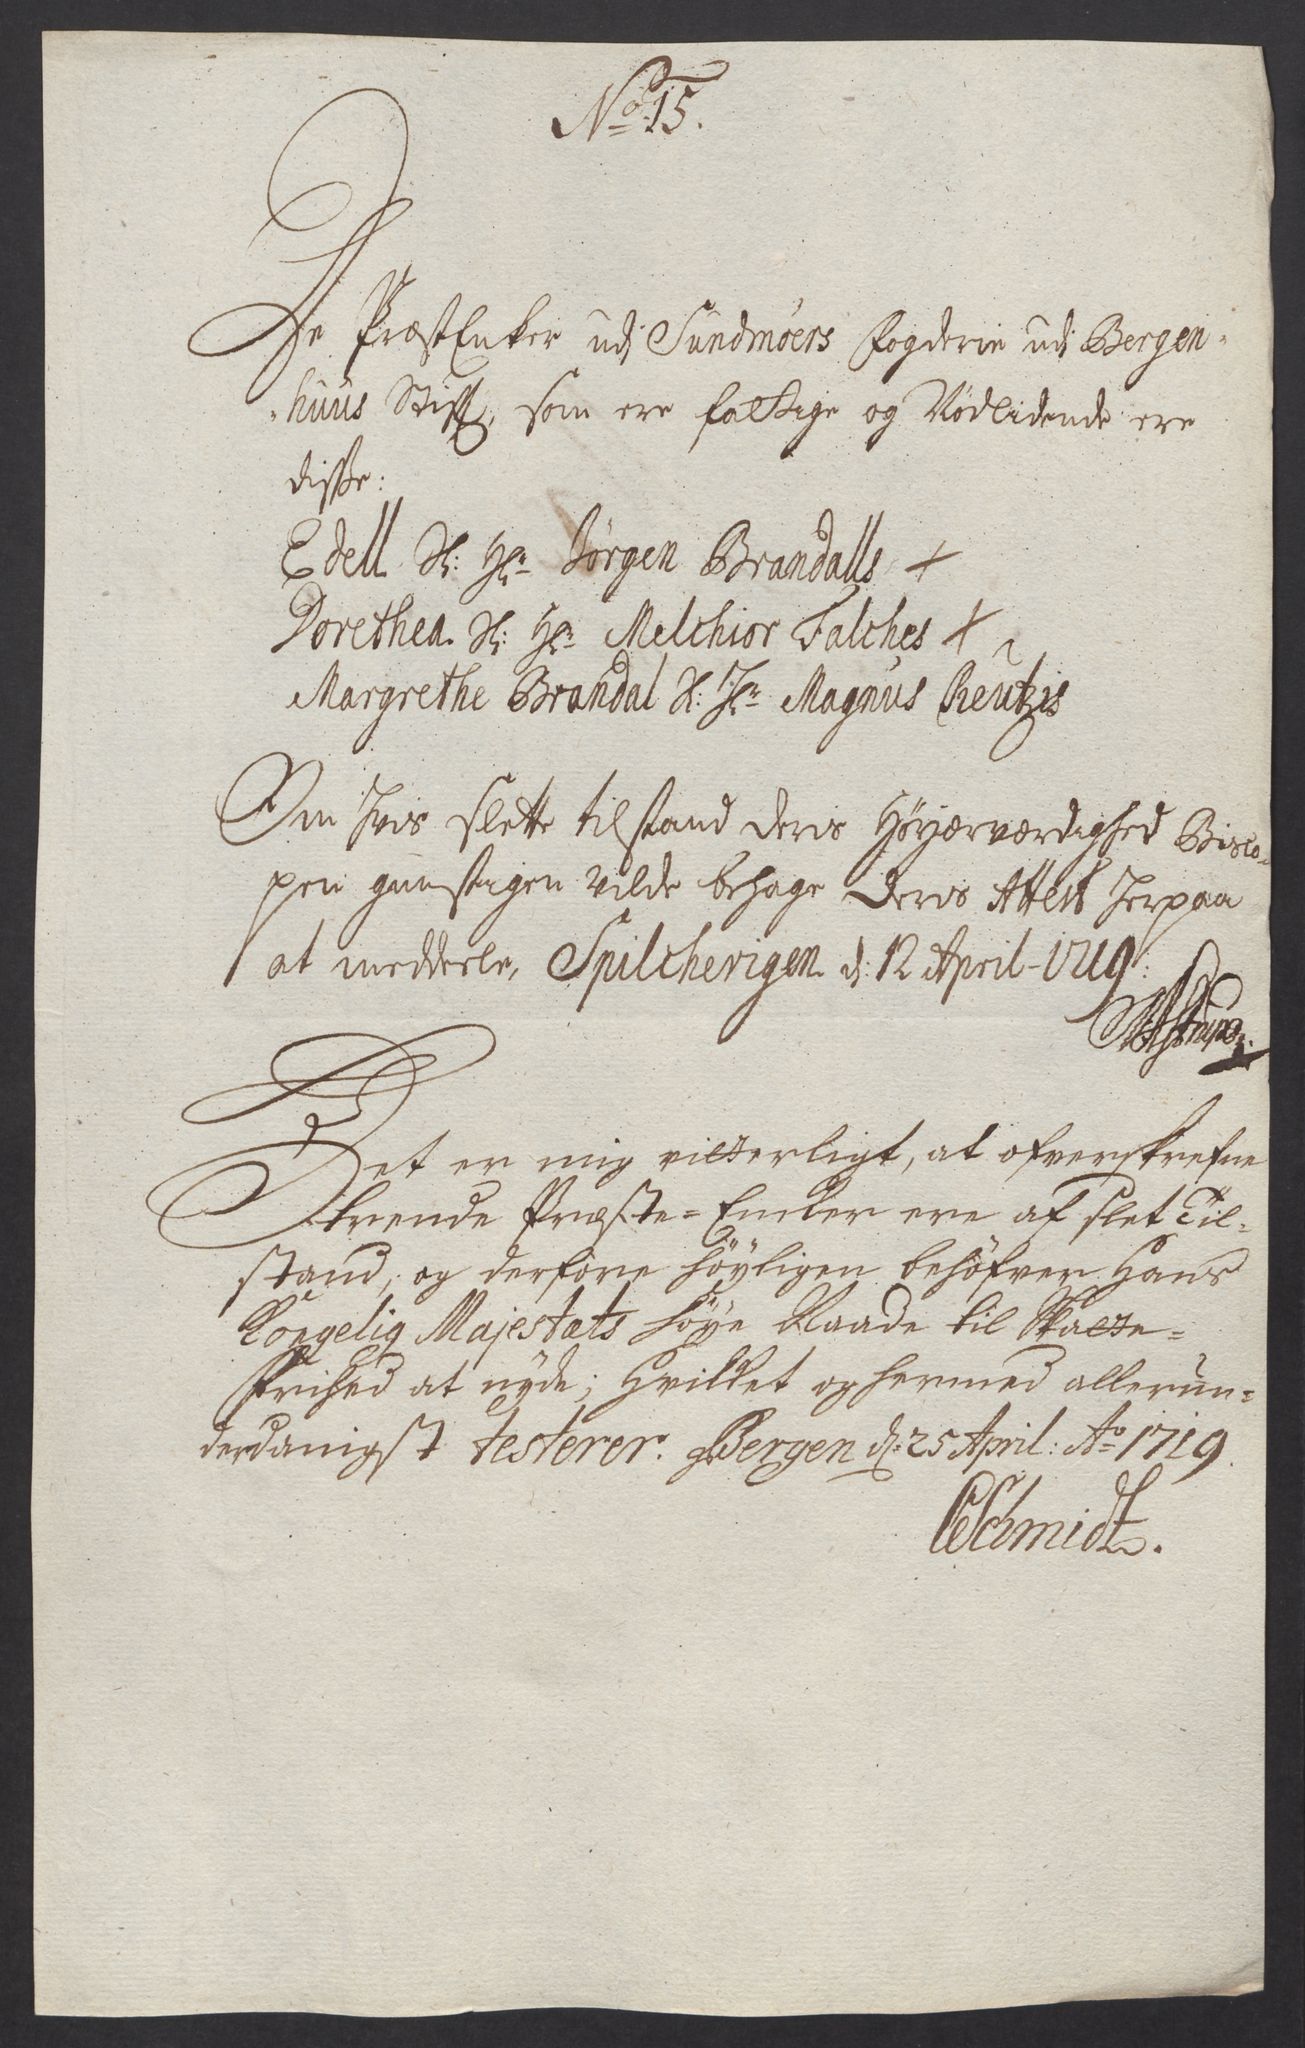 No 15.
De PræstEnker udj Sundmöers fogderie udj Bergen-
-huus Stift, som ere fattige og Nödlidende ere
disse:
Edell Sl: Hr Jörgen Brandalls +
Dorethea Sl: Hr Melchior Falches +
Margrethe Brandal Sl: Hr Magnus Reutzis
Om hvis slette tilstand deris Höyærværdighed Bisco-
pen gunstigen vilde behage Deris Attest herpaa
at meddeele, Spilchevigen d: 12 April-1719:
Det er mig vitterligt, at ofverskrefne
trende Præste-Encker ere af slet Til-
stand, og derfore höyligen behöfver Hans
Kongelig Majestæts höye Naade til Skatte-
Frihed at nyde; Hvilket og hermed allerun-
derdanigst testerer. Bergen d: 25 April: Ao 1719.
CSchmidt.